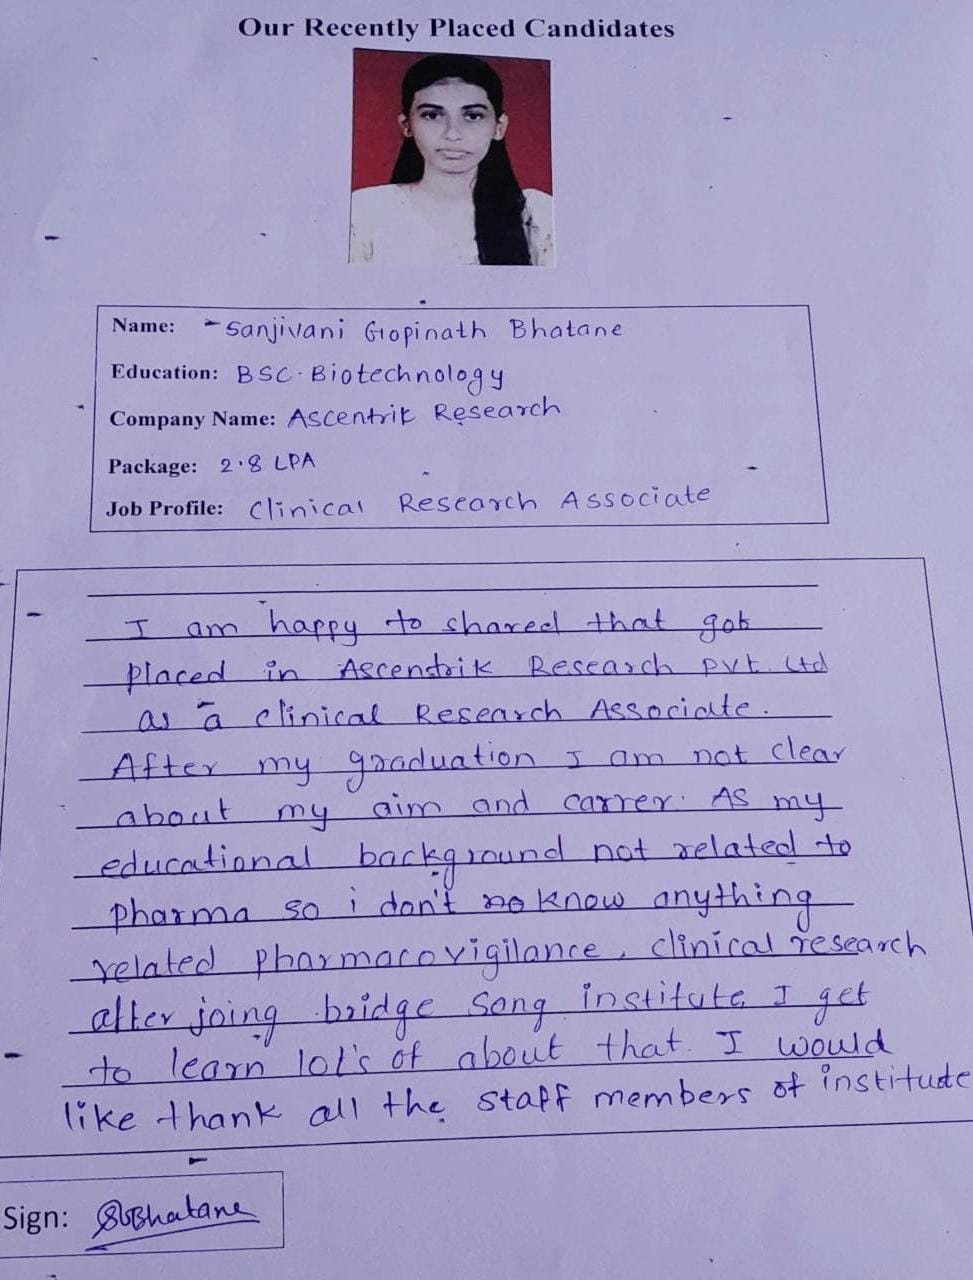 Our Recently Placed Candidates
Name: - Sanjivani Gopinath Bhatane
Education: BSC. Biotechnology
Company Name: Ascentrik Research
Package: 2.8 LPA
Job Profile: Clinical Research Associate
I am happy to shared that gob
placed in Ascentrik Research pvt. Ltd
as a clinical Research Associate.
After my graduation I am not clear
about my aim and carrer. As my
educational background not related to
pharma so i don't know anything
related pharmacovigilance, clinical research
after joing bridge song institute I get
to learn lot's of about that. I would
like thank all the staff members of institute
Sign: SGBhatane